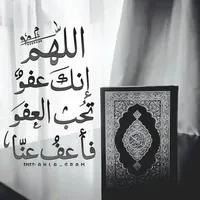 اللهم
إنك عفو
تحب العفو
فاعف عنا